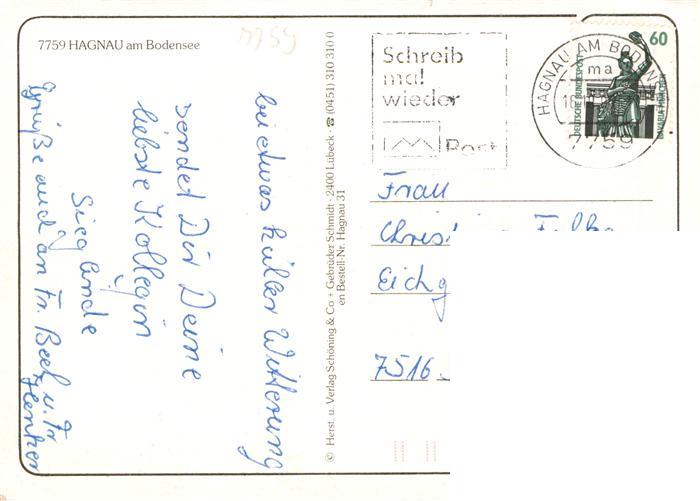 7759 HAGNAU am Bodensee
7759
bei etwas kühler Witterung
sendet Dir Deine
liebste Kollegin
Sieglinde
Grüße auch an Fr. Beck u. Fr.
© Herst. u. Verlag Schöning & Co + Gebrüder Schmidt · 2400 Lübeck · ☎ (0451) 310 310 0
en Bestell-Nr. Hagnau 31
Schreib
mal
wieder
Post
HAGNAU AM BODEN
ma
7759
60
DEUTSCHE BUNDESPOST
BAVARIA MÜNCHEN
Frau
Eichg
7516